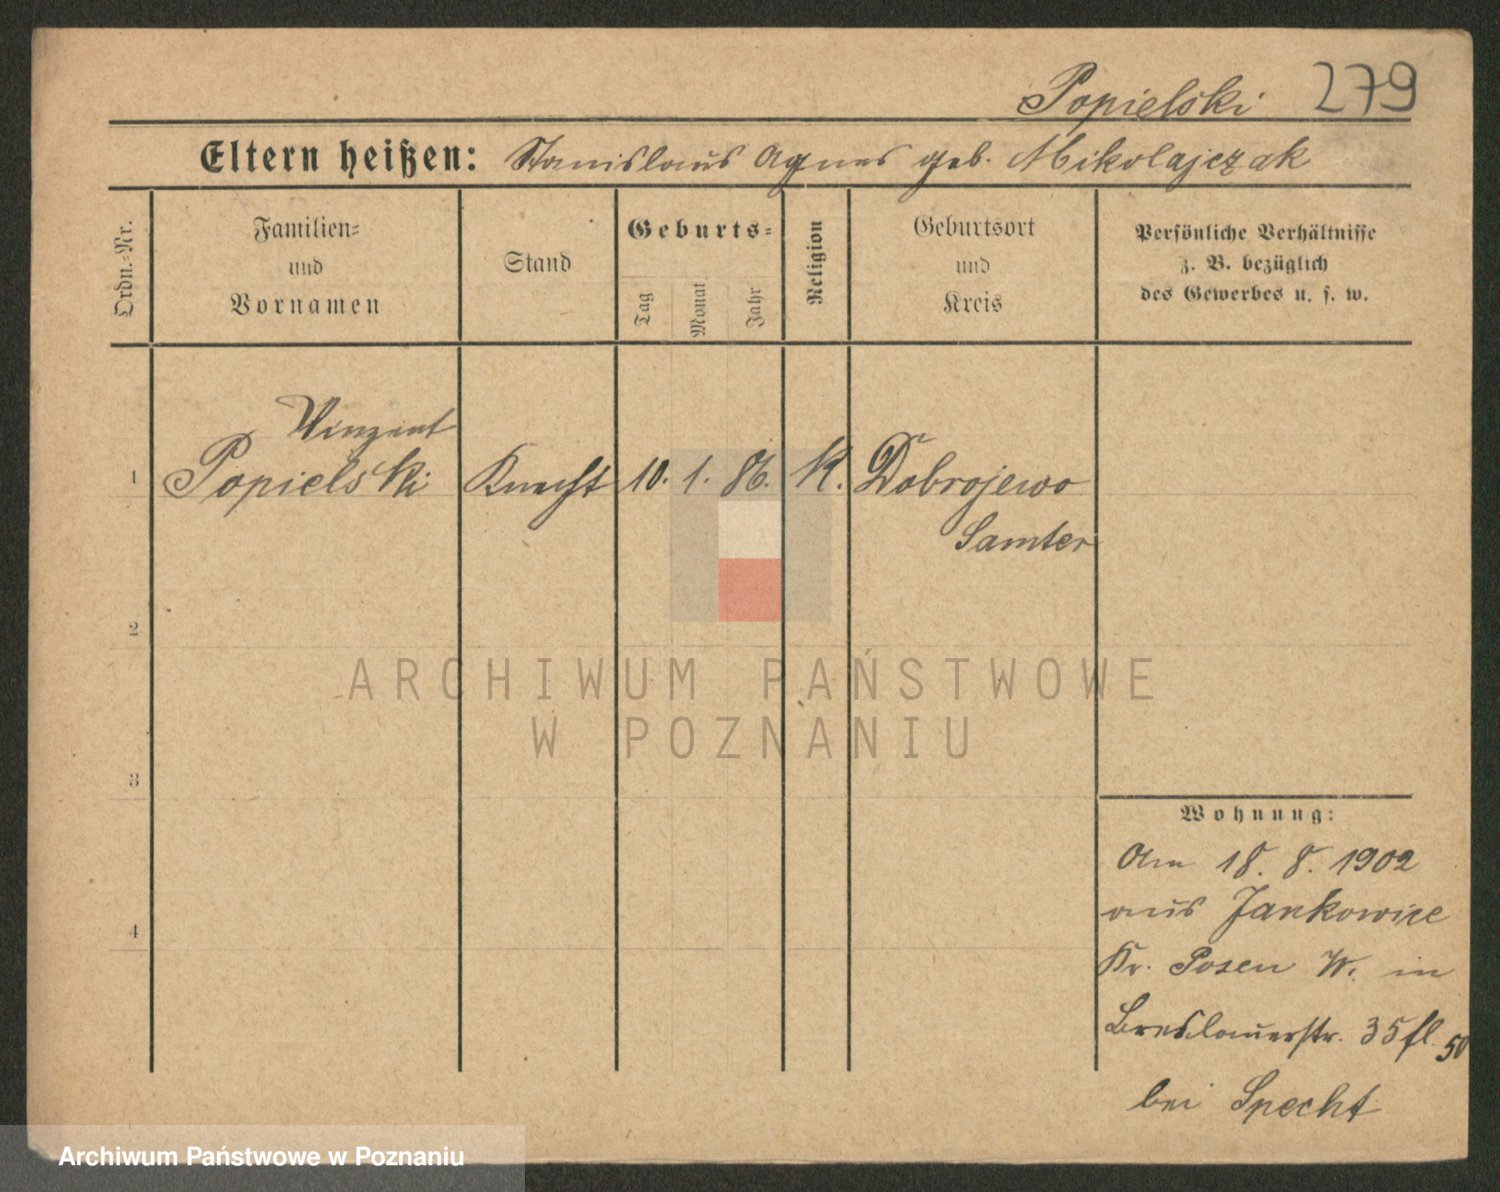 Popielski 279
Eltern heißen: Stanislaus Agnes geb. Mikolajczak
Ordn.-Nr.
Familien-
und
Vornamen
Stand
Geburts-
Tag
Monat
Jahr
Religion
Geburtsort
und
Kreis
Persönliche Verhältnisse
z. B. bezüglich
des Gewerbes u. s. w.
Vinzent
1 Popielski Knecht 10. 1. 86. K. Dobrojewo
Samter
2
ARCHIWUM PAŃSTWOWE
W POZNANIU
3
Wohnung:
Am 18. 8. 1902
aus Jankowice
4
Kr. Posen W. in
Breslauerstr. 35 fl. 50
bei Specht
Archiwum Państwowe w Poznaniu